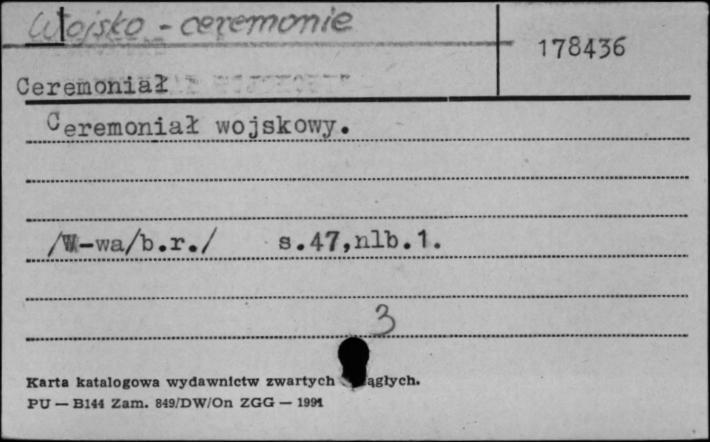 Wojsko - ceremonie
178436
Ceremoniał
Ceremoniał wojskowy.
/W-wa/b.r./ s.47,nlb.1.
3
Karta katalogowa wydawnictw zwartych
PU — B144 Zam. 849/DW/On ZGG — 1991